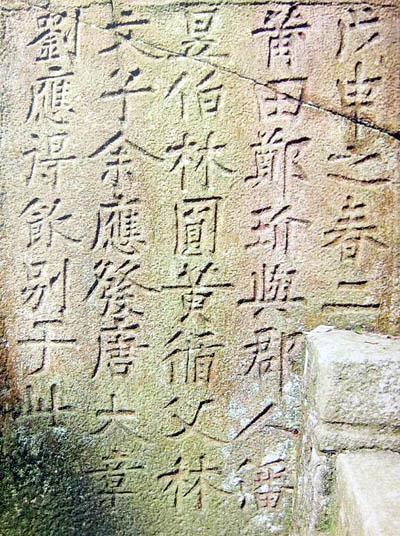 戊申之春二
莆田鄭與郡人潘
是伯林圓黃循父林
文子余應發唐大章
劉應得飲别于此